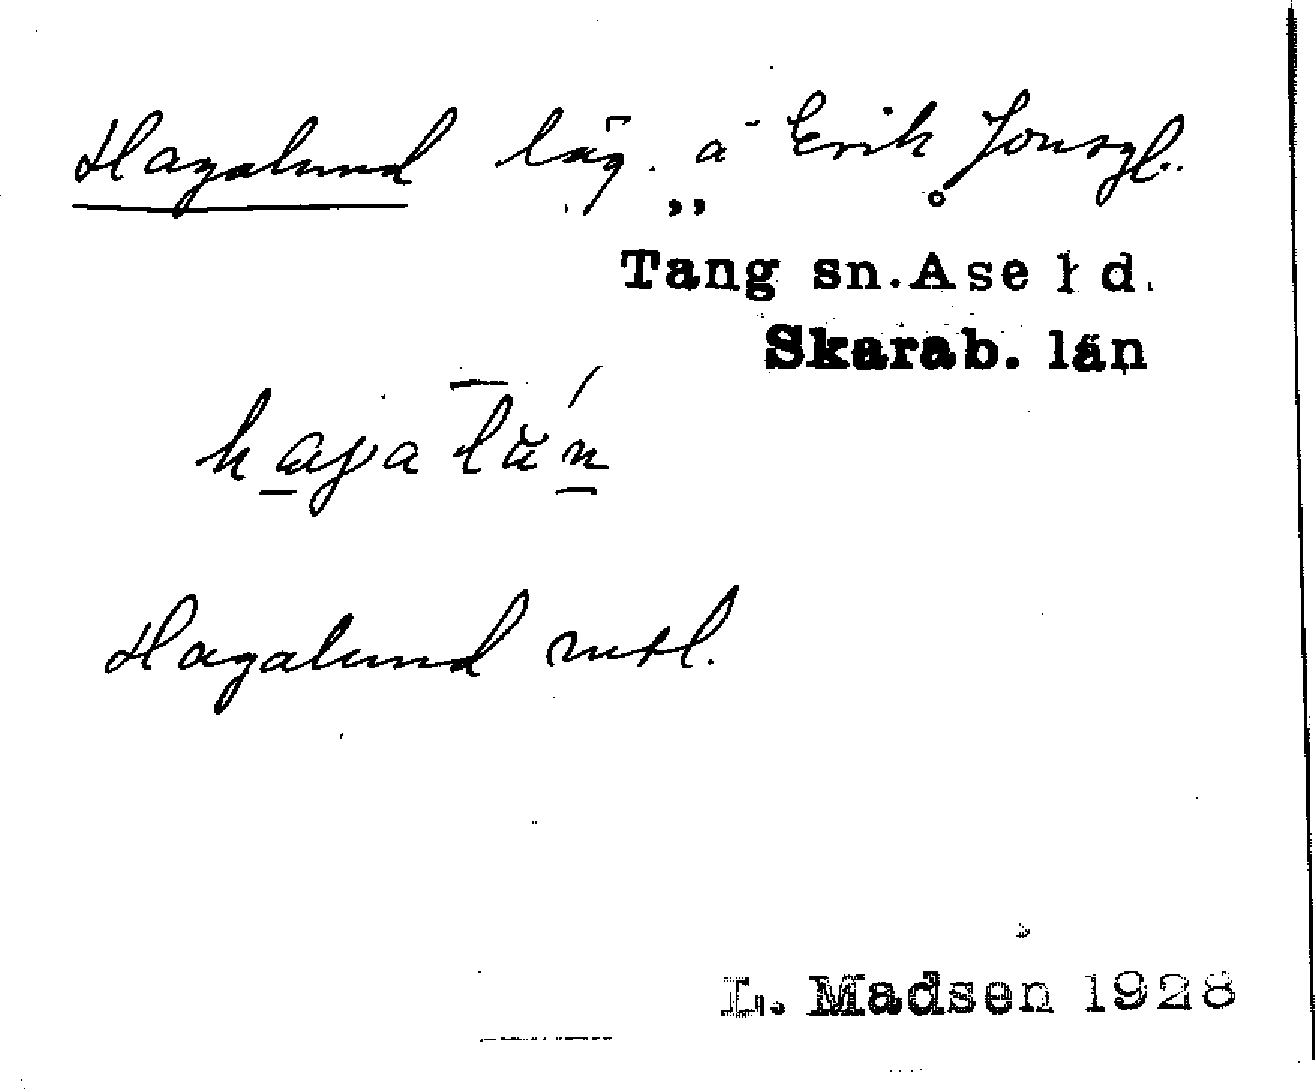 Hagalund läg. å Erik Jonsgl.
Täng sn. Åse hd.
Skarab. län
Hagalund mtl.
L. Madsen 1928